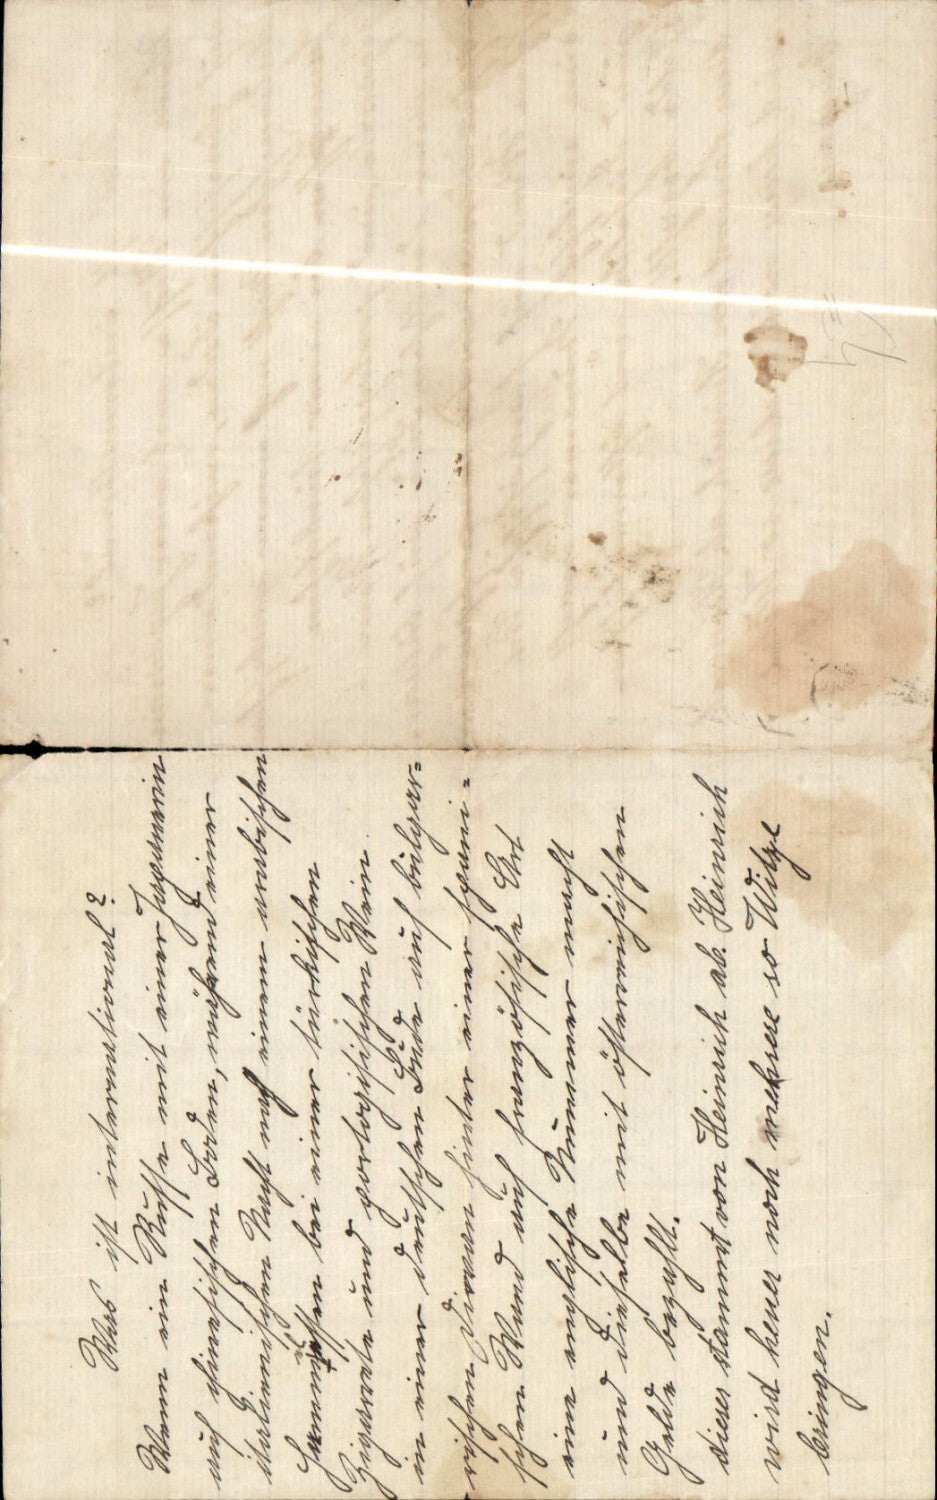 Was ist international?
Wenn ein Russe mit einer Japanerin
auf chinesischen Boden, während einer
italienischen Nacht nach einem arabischen
bei einer türkischen
Zigarrete und portogisischen Wein
in einer deutschen Bude auf bulgar=
rischen Diwan hinter einer spani=
schen Wand auf französische Art
eine englische Nummer macht
und dieselbe mit österreichischen
Gelde bezahlt.
dieser stammt von Heinrich ab. Heinrich
wird heuer noch mehrere so Witze
bringen.